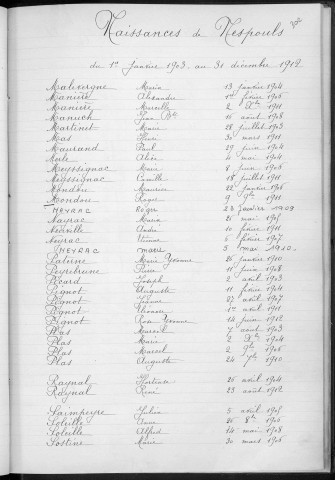 Naissances de Nespouls
du 1er Janvier 1903 au 31 décembre 1912
Malevergne Maria 13 janvier 1904
Manière Alexandre 1908
Manière Marcelle 2 Xbre 1911
Manuch Jean Bte 16 août 1908
Martinet Marie 28 juillet 1903
Mas 30 mars 1911
Maurand Paul 29 juin 1904
Merle Alice 4 mai 1904
Meyssignac Maria 8 juin 1908
Meyssignac Camille 18 juillet 1911
Mondou Maurice 22 janvier 1906
Mondou Roger 9 1911
NEYRAC Roger 23 Janvier 1909
Nayrac Maria 26 mai 1905
Neuville André 10 février 1911
Neyrac Etienne 6 février 1907
NEYRAC Marie 5 mai 1910
Paterne Marie Yvonne 26 janvier 1910
Peyrebrune Pierre 11 juin 1908
Picard Joseph 2 avril 1903
Pignot Auguste 11 février 1904
Pignot Jeanne 27 avril 1907
Pignot 1er avril 1911
Pignot Yvonne 14 juin 1912
Plas Marcel 7 août 1903
Plas Maria 2 Xbre 1904
Plas Marcel 2 9bre 1908
Plas Auguste 24 7bre 1910
Raynal 26 avril 1904
Raynal René 23 août 1912
Julien 5 avril 1905
Soleille 26 8bre 1905
Soleille Alfred 14 mai 1908
Sostine Marie 30 mars 1906